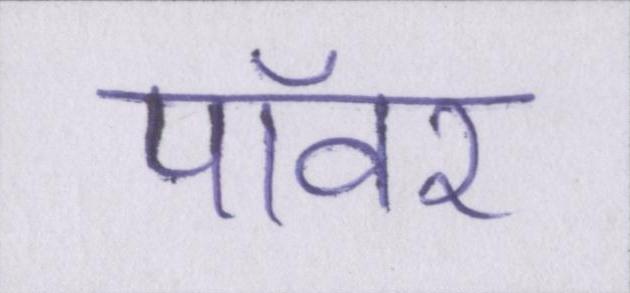 पॉवर